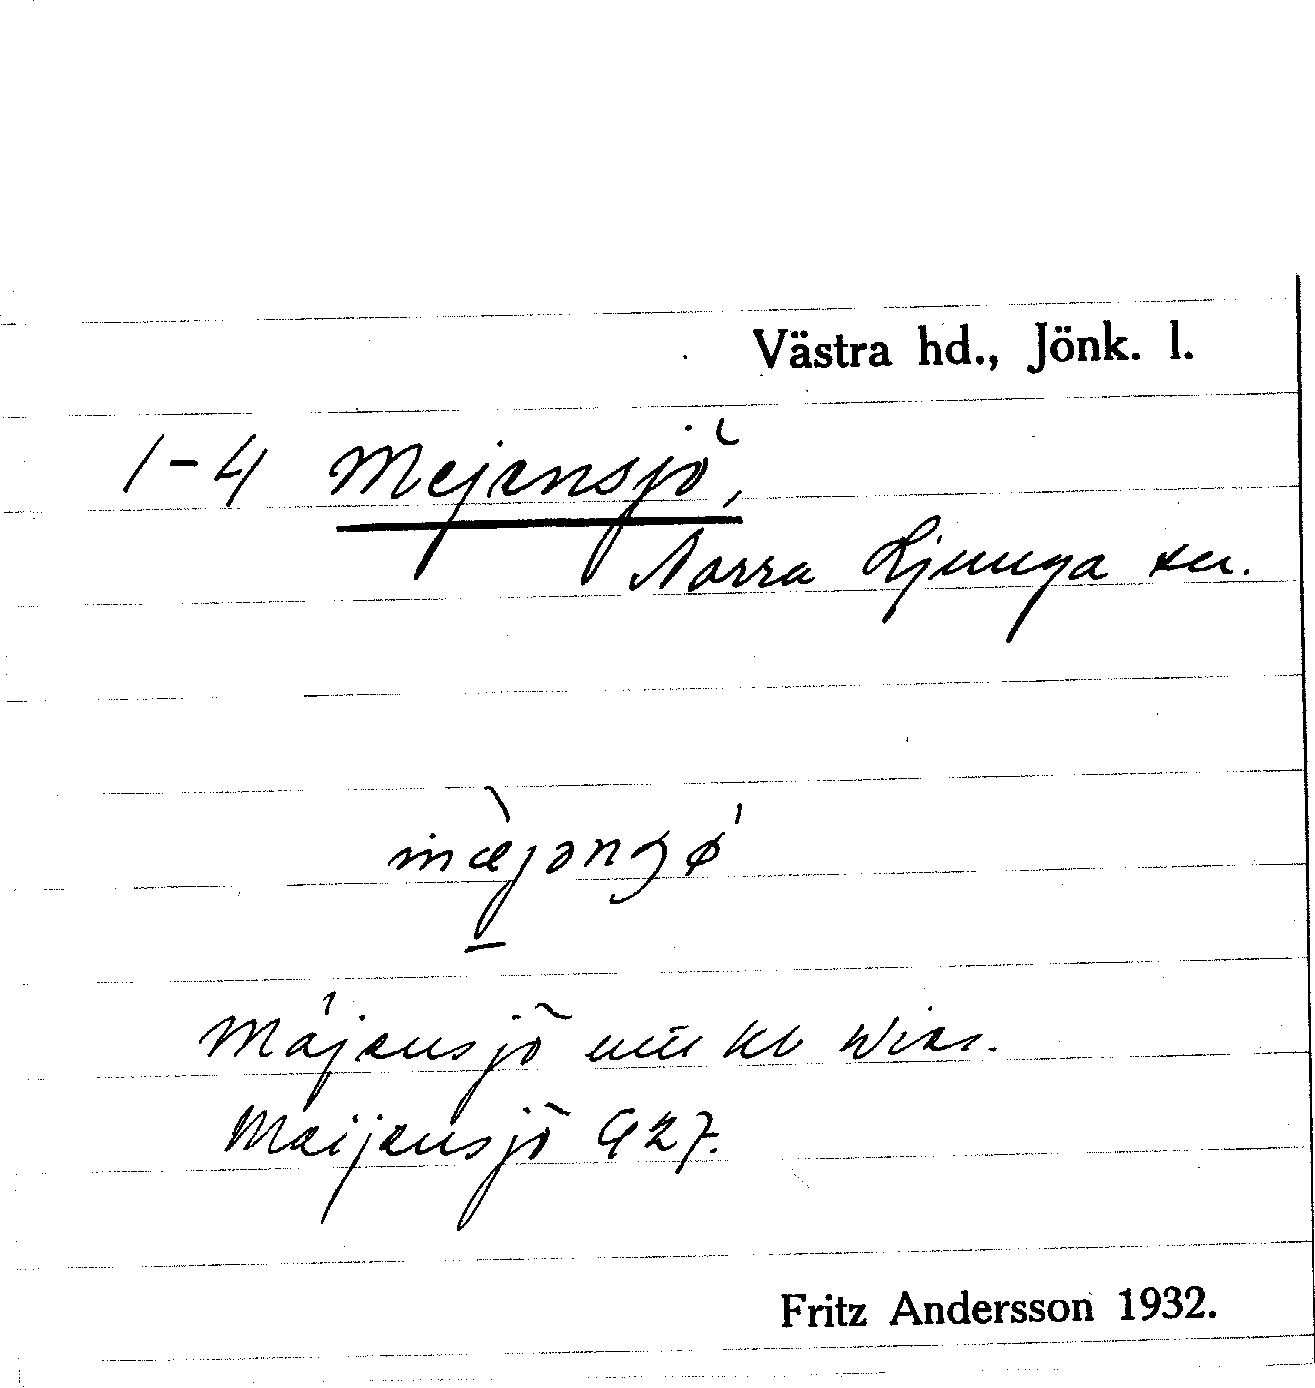 Västra hd., Jönk. l.
1-4 Mejensjö,
Norra Ljunga sn.
mæ̀jənʒø
Mäjensjö
Maijensjö 927.
Fritz Andersson 1932.